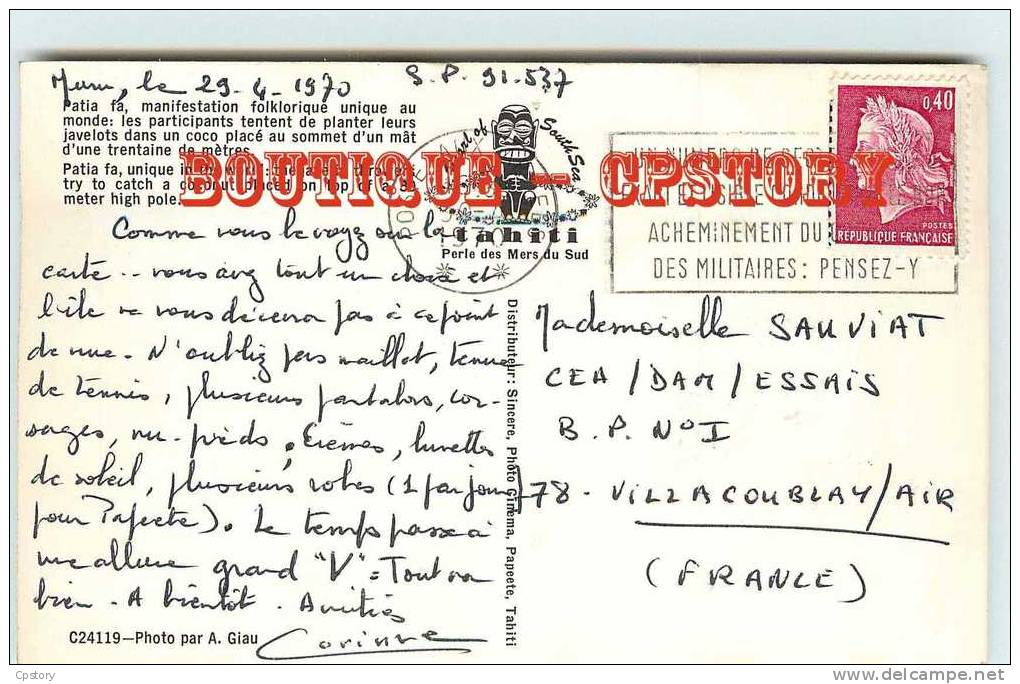 Muru, le 29-4-1970
S.P. 91.537
Patia fa, manifestation folklorique unique au
monde: les participants tentent de planter leurs
javelots dans un coco placé au sommet d'un mât
d'une trentaine de mètres.
Patia fa, unique in the
try to catch a coconut placed on top of a 30
meter high pole.
BOUTIQUE - CPSTORY
Pearl of South Sea
tahiti
Perle des Mers du Sud
1970
ACHEMINEMENT DU
DES MILITAIRES: PENSEZ-Y
0,40
POSTES
RÉPUBLIQUE FRANÇAISE
Comme vous le voyez sur la
carte - vous avez tout un choix et
l'île ne vous décevra pas à ce point
de vue - N'oubliez pas maillot, tenue
de tennis, plusieurs pantalons, cor-
sages, nu-pieds, crèmes, lunettes
de soleil, plusieurs robes (1 par jour
pour Papeete). Le temps passe à
une allure grand "V" - Tout va
bien - A bientôt. Amitiés
Corinne
C24119—Photo par A. Giau
Distributeur: Sincere, Photo Cinéma, Papeete, Tahiti
Mademoiselle SAUVIAT
CEA/DAM/ESSAIS
B.P. N° I
78 - VILLACOUBLAY/AIR
(FRANCE)
Cpstory
delcampe.net